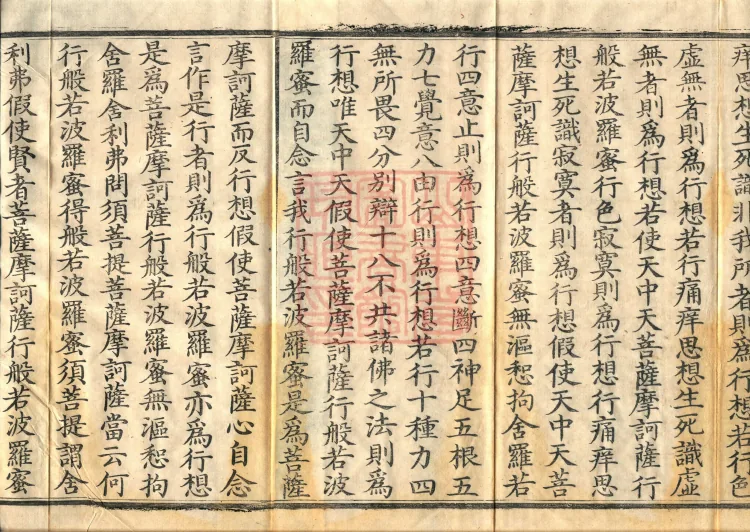 痒思想生死識非我所者則爲行想若行色
虛無者則爲行想若行痛痒思想生死識虛
無者則爲行想若使天中天菩薩摩訶薩行
般若波羅蜜行色寂寞則爲行想行痛痒思
想生死識寂寞者則爲行想假使天中天菩
薩摩訶薩行般若波羅蜜無漚惒拘舍羅若
行四意止則爲行想四意斷四神足五根五
力七覺意八由行則爲行想若行十種力四
無所畏四分別辯十八不共諸佛之法則爲
行想唯天中天假使菩薩摩訶薩行般若波
羅蜜而自念言我行般若波羅蜜是爲菩薩
摩訶薩而反行想假使菩薩摩訶薩心自念
言作是行者則爲行般若波羅蜜亦爲行想
是爲菩薩摩訶薩行般若波羅蜜無漚惒拘
舍羅舍利弗問須菩提菩薩摩訶薩當云何
行般若波羅蜜得般若波羅蜜須菩提謂舍
利弗假使賢者菩薩摩訶薩行般若波羅蜜